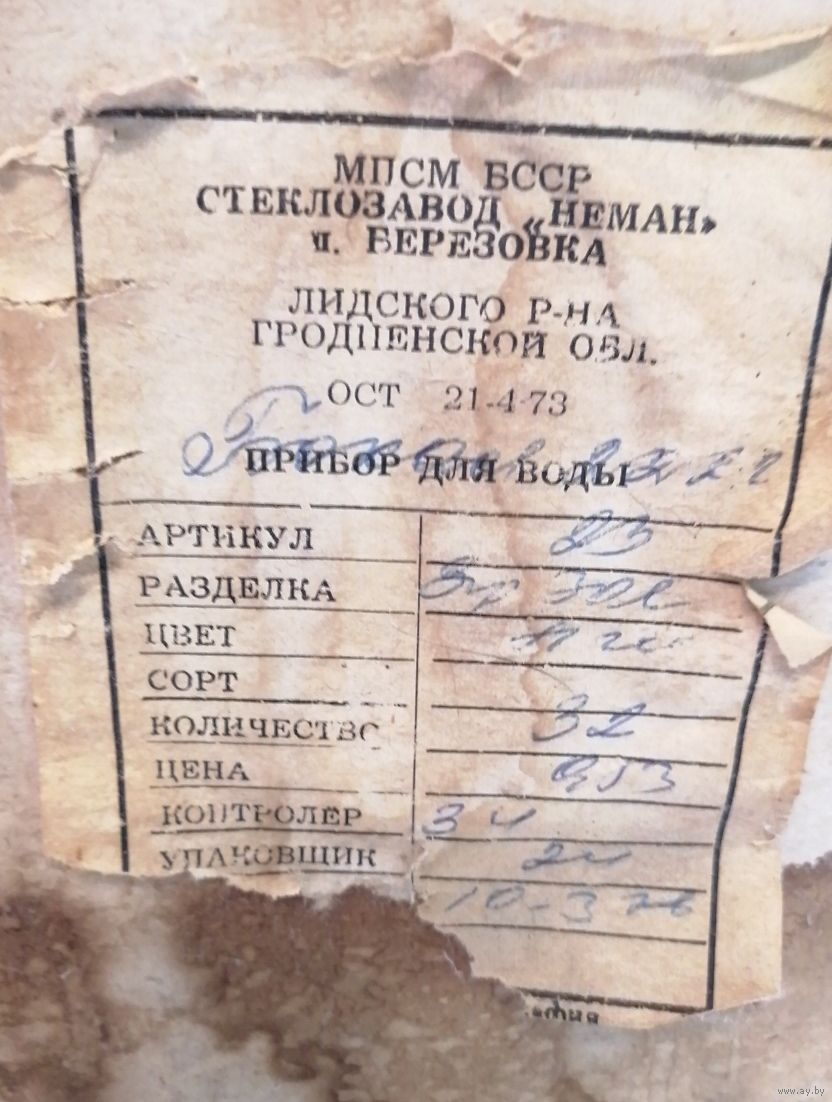 МПСМ БССР
СТЕКЛОЗАВОД „НЕМАН“
п. БЕРЕЗОВКА
ЛИДСКОГО Р-НА
ГРОДНЕНСКОЙ ОБЛ.
ОСТ 21-4-73
ПРИБОР ДЛЯ ВОДЫ
АРТИКУЛ 23
РАЗДЕЛКА
ЦВЕТ
СОРТ
КОЛИЧЕСТВО 32
ЦЕНА
КОНТРОЛЕР 34
УПАКОВЩИК
10-3 76
www.ay.by